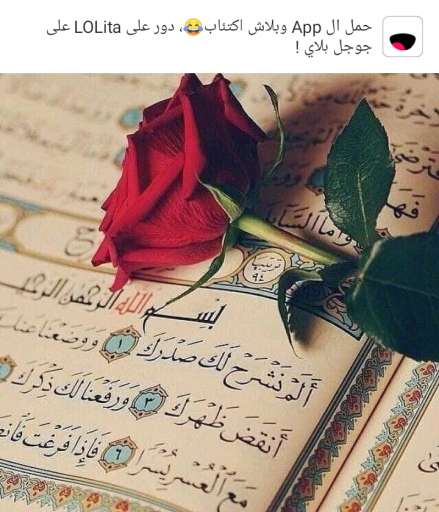 حمل ال App وبلاش اكتئاب😂، دور على LOLita على
جوجل بلاي !
وَأَمَّا السَّائِلَ
ترتيبها ٩٤
بِسْمِ اللَّهِ الرَّحْمَنِ الرَّحِيمِ
أَلَمْ نَشْرَحْ لَكَ صَدْرَكَ ١ وَوَضَعْنَا عَنكَ
أَنقَضَ ظَهْرَكَ ٣ وَرَفَعْنَا لَكَ ذِكْرَكَ
مَعَ الْعُسْرِ يُسْرًا ٦ فَإِذَا فَرَغْتَ